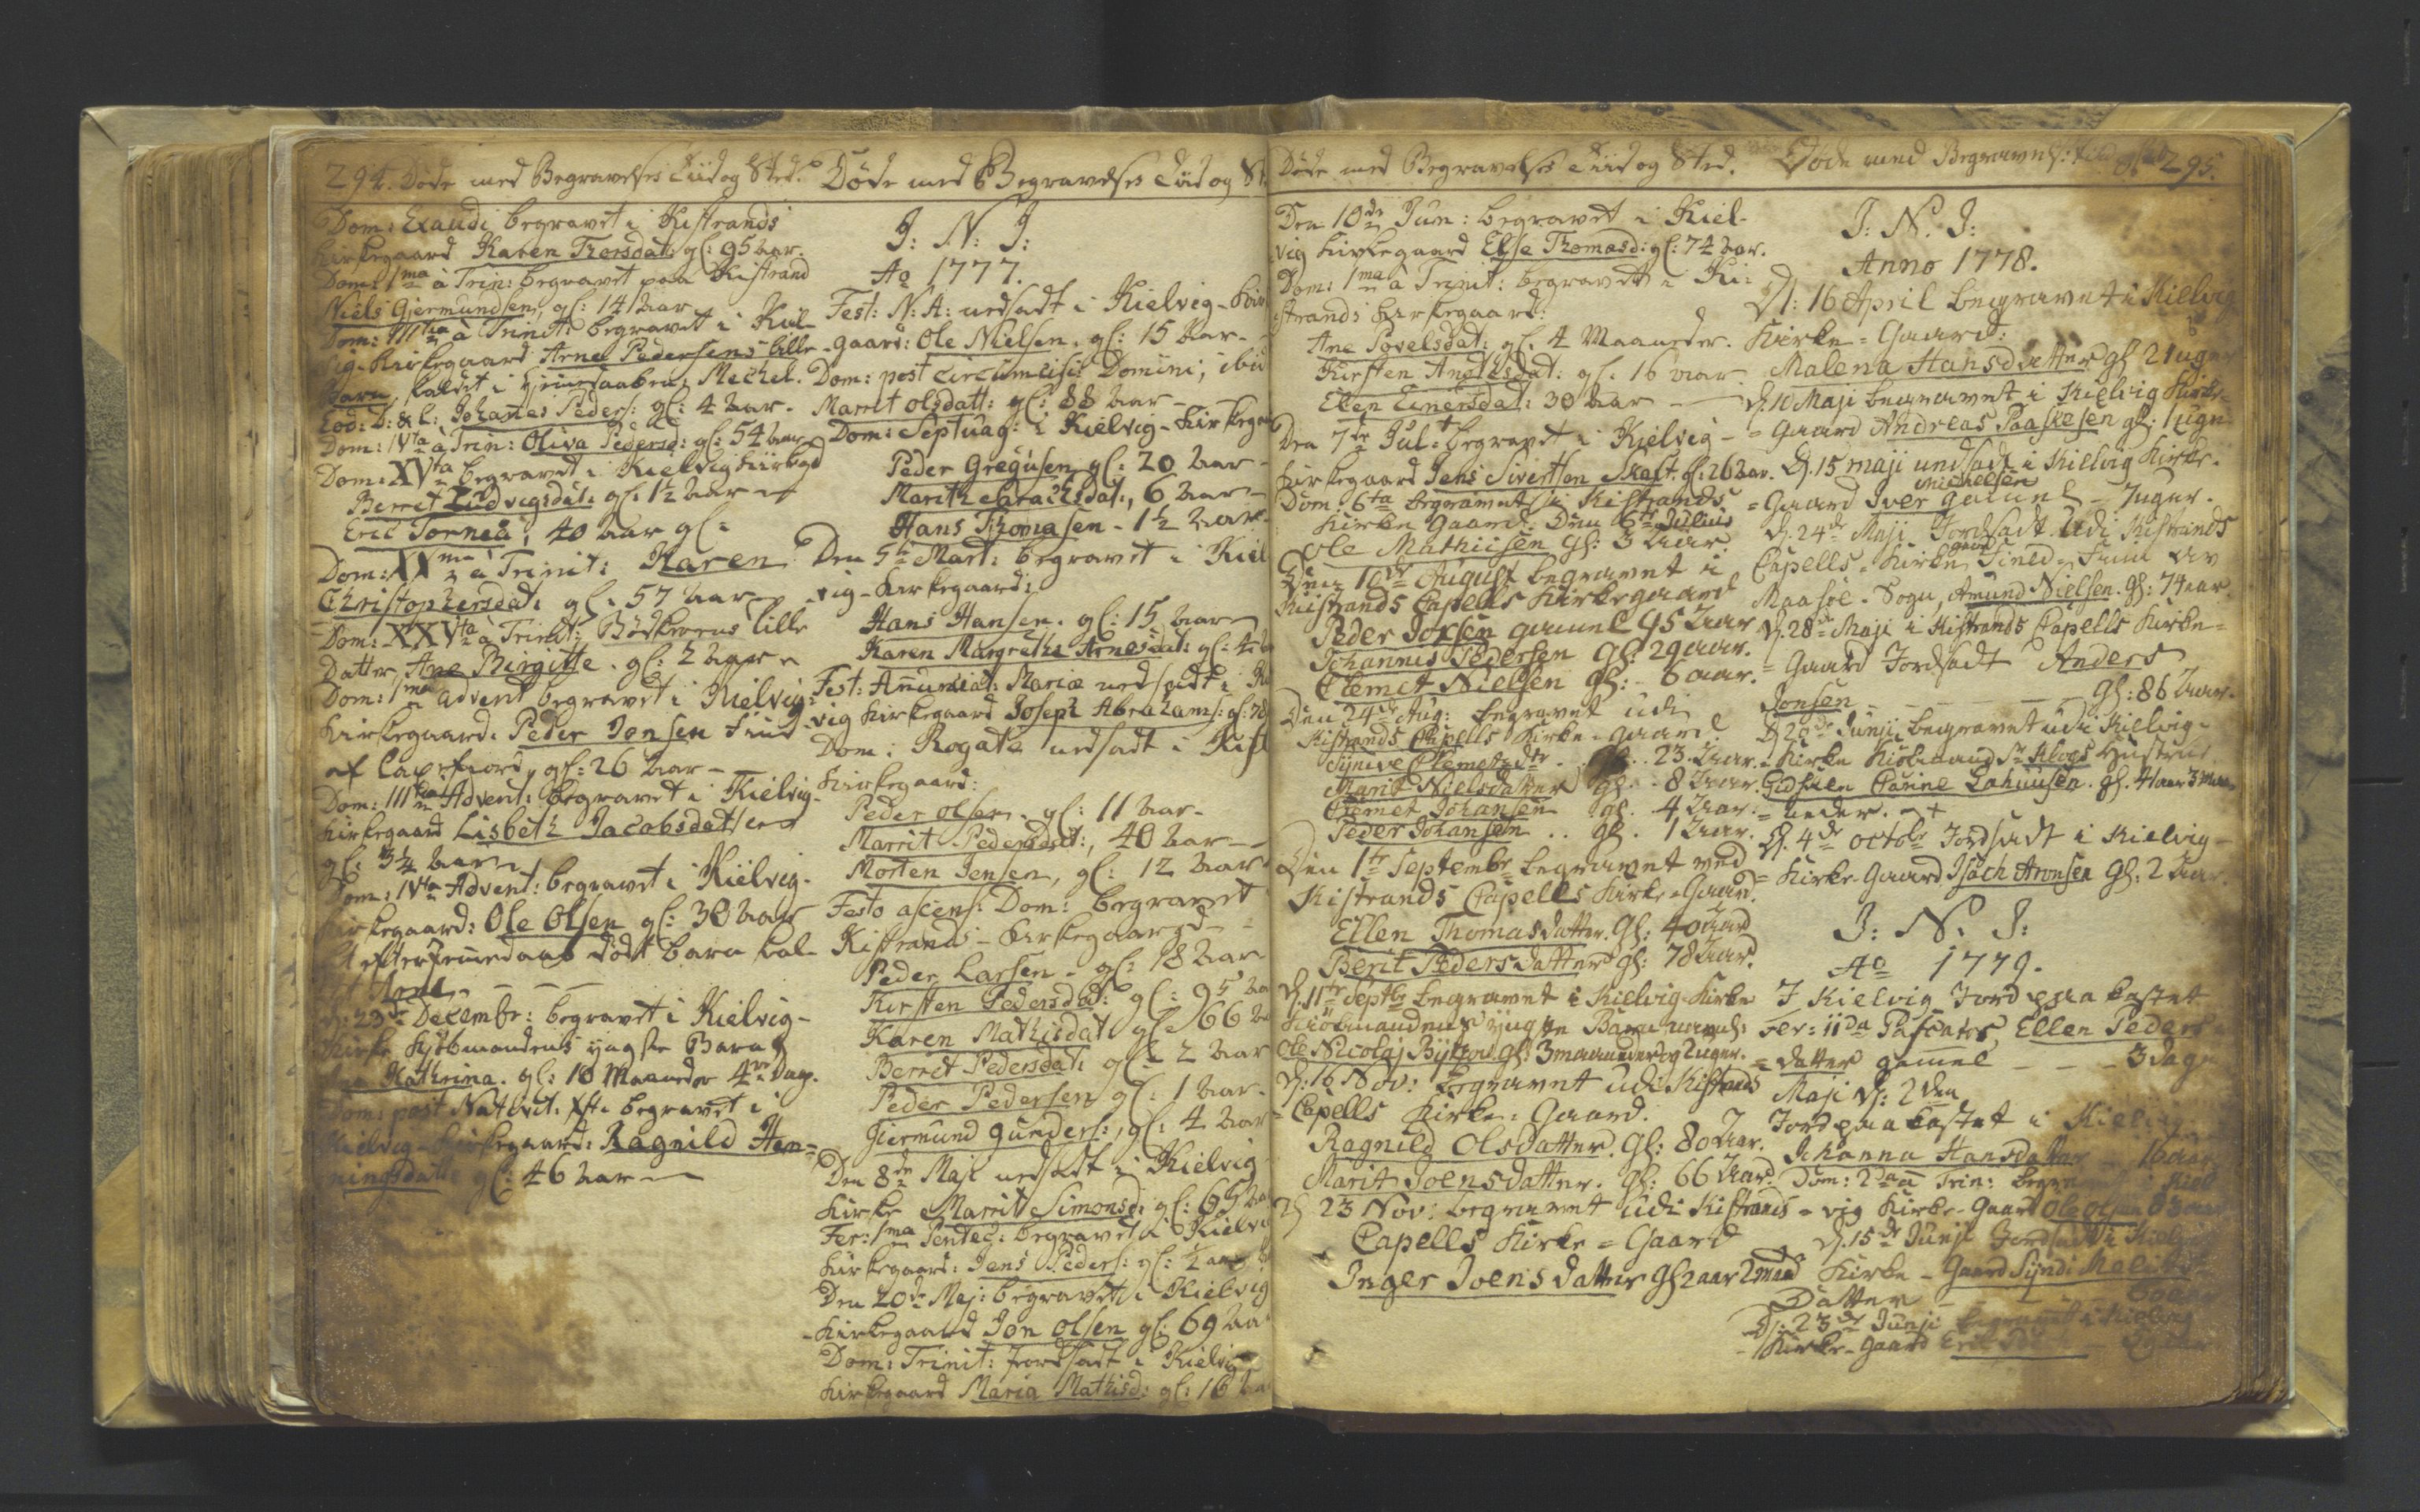 294. Døde med Begravelses Tiid og Sted.
Dom: Exaudi begravet i Kistrands
Kirkegaard Karen Thorsdat: gl: 95 Aar.
Dom: 1ma à Trin: begravet paa Kistrand
Niels Gjermundsen, gl: 14 Aar
Dom: IIItia à Trinit: begravet i Kiel-
vig-Kirkegaard Arne Pedersens lille
Barn, kaldt i Hjemedaaben, Mechel.
Eod: D: & L: Johanes Peders: gl: 4 Aar.
Dom: IVta à Trin: Oliva Pedersd: gl: 54 Aar
Dom: XVta begravet i Kielvig Kirkegd
Berret Ludvigsdat: gl: 1½ Aar
Eric Torneå, 40 Aar gl:
Dom: XXma à Trinit: Karen
Christophersdat: gl: 57 Aar
Dom: XXVta à Trinit: Bødkerens lille
Datter, Ane Birgitte. gl: 2 Aar
Dom: 1ma Advent begravet i Kielvig-
Kirkegaard. Peder Jonsen Find
af Laxefiord, gl: 26 Aar
Dom: IIItia Advent: begravet i Kielvig-
Kirkegaard Lisbeth Jacobsdatter
gl: 3¼ Aar
Dom: IVta Advent: begravet i Kielvig-
Kirkegaard: Ole Olsen gl: 30 Aar
et efter Hiemedaab dødt Barn kal-
det Arne
d: 23de Decembr: begravet i Kielvig-
Kirke Kjøbmandens yngste Barn
Kathrina. gl: 10 Maaneder 4re Dag.
Dom: post Nativit: Xsti begravet i
Kielvig-Kirkegaard: Ragnild Hen-
ningsdatte gl: 46 Aar
Døde med Begravelses Tiid og St
J: N: J:
Ao 1777.
Fest: N: A: nedsadt i Kielvig-Kir
gaard: Ole Nielsen. gl: 15 Aar.
Dom: post Circumcis: Domini, ibid
Marrit Olsdatt: gl: 88 Aar
Dom: Septuag: i Kielvig-Kirkega
Peder Gregusen gl: 20 Aar
Marithe Grachsdat:, 6 Aar
Hans Thomasen - 1½ Aar
Den 5te Mart: begravet i Kiel
vig-Kirkegaard:
Hans Hansen. gl: 15 Aar
Karen Margrethe Arnesdat: gl: 4
Fest: Anunciat: Mariæ nedsadt i Ki
vig Kirkegaard Joseph Abrahams: gl: 78
Dom: Rogate nedsadt i Kist
Kirkegaard:
Peder Olsen. gl: 11 Aar
Marrit Pedersdat:, 40 Aar
Morten Jensen, gl: 12 Aar
Festo ascens: Dom: begravet
Kistrands-Kirkegaard
Peder Larsen - gl: 18 Aar
Kirsten Pedersdat: gl: 95 Aa
Karen Mathisdat gl: 66 Aa
Berret Pedersdat: gl: 2 Aar
Peder Pedersen gl: 1 Aar
Giermund Gunders:, gl: 4 Aar
Den 8de Maji nedsadt i Kielvig
Kirke Marrit Simonsd: gl: 65 Aa
Fer: 1ma Pentec: begravet i Kielvi
Kirkegaard: Jens Peders: gl: ½ Aar
Den 20de Maj: begravet i Kielvig
Kirkegaard Jon Olsen gl: 69 Aa
Dom: Trinit: Jordsadt i Kielvig
Kirkegaard Maria Mathisd: gl: 16 Aa
Døde med Begravelses Tiid og Sted.
Den 10de Jun: begravet i Kiel-
vig Kirkegaard Else Thomasd: gl: 74 Aar.
Dom: 1ma à Trinit: begravet i Ki-
strands Kirkegaard:
Ane Povelsdat: gl: 4 Maaneder.
Kirsten Andersdat: gl: 16 Aar
Elen Einersdat: 30 Aar
Den 7de Jul: begravet i Kielvig-
Kirkegaard Jens Sivertsen gl: 26 Aar.
Dom: 6ta begravet i Kistrands
Kirke Gaard. Den 6te Julius
Ole Mathiisen gl: 3 Aar.
Den 10de August begravet i
Kistrands Capells Kirkegaard
Peder Joxsen gamel 95 Aar
Johannis Pedersen gl: 29 aar.
Clemet Nielsen gl: 6 aar.
Den 24de Aug: begravet udi
Kistrands Capells Kirke-Gaard
Synive Clemetsdtr . gl. 23 Aar.
Marit Nielsdatter gl: 8 Aar.
Clemet Johansen gl. 4 Aar.
Peder Johansen .. gl. 1 Aar.
Den 1te Septembr begravet ved
Kistrands Capells Kirke-Gaard.
Ellen Thomasdatter. gl: 40 Aar
Berit Pedersdatter gl: 78 Aar.
d. 11te Septbr begravet i Kielvig Kirke
Kiøbmandens yngste Barn navnl:
Ole Nicolaj gl: 3 maaneder og 2 uger.
d: 16 Nov: begravet udi Kistrands
Capells Kirke-Gaard.
Ragnild Olsdatter. gl: 80 Aar.
Marit Joensdatter. gl: 66 Aar.
d 23 Nov: begravet udi Kistrands
Capells Kirke=Gaard
Inger Joens datter gl 2 aar 2 maad
Døde med Begravels: Tiid og Sted 295.
J: N: J:
Anno 1778.
d: 16 April begravet i Kielvig
Kirke-Gaard:
Malena Hansdatter gl 2 Uger
d. 10 Maji begravet i Kielvig Kirke-
=Gaard Andreas Paaskesen gl: 1 uge
d. 15 maji nedsadt i Kielvig Kirke-
=Gaard Iver Michelsen gamel - 7 uger.
d. 24de Maji Jordsadt udi Kistrands
Capells-Kirkegaard Find av
Maasøe-Sogn, Amund Nielsen. gl: 74 aar.
d. 28de Maji i Kistrands Capells Kirke-
=Gaard Jordsadt Anders
Jonsen - - - gl: 86 Aar.
d 20de Junii begravet udi Kielvig-
Kirke Kiøbmand Sr Hustrue
gl. 41 aar 3 maa-
=neder.
d. 4de Octobr Jordsadt i Kielvig-
=Kirke-Gaard Isach Aronsen gl: 2 Aar.
J: N: J:
Ao 1779.
I Kielvig Jord paa kastet
Fer: IIda Paschatos, Ellen Peders
=datter gamel - - 3 dage
Maji d: 2den
Jord paa kastet i Kielvig
Johanna Hansdatter - 16 aar
Dom: 2da à Trin: begravet i Kiel
=vig Kirke-Gaard Ole Olsen 63 aar
d. 15de Junji Jordsadt i Kielvig
Kirke-Gaard Syndi
Datter
d: 23de Junji begravet i Kielvig
Kirke-Gaard Eric